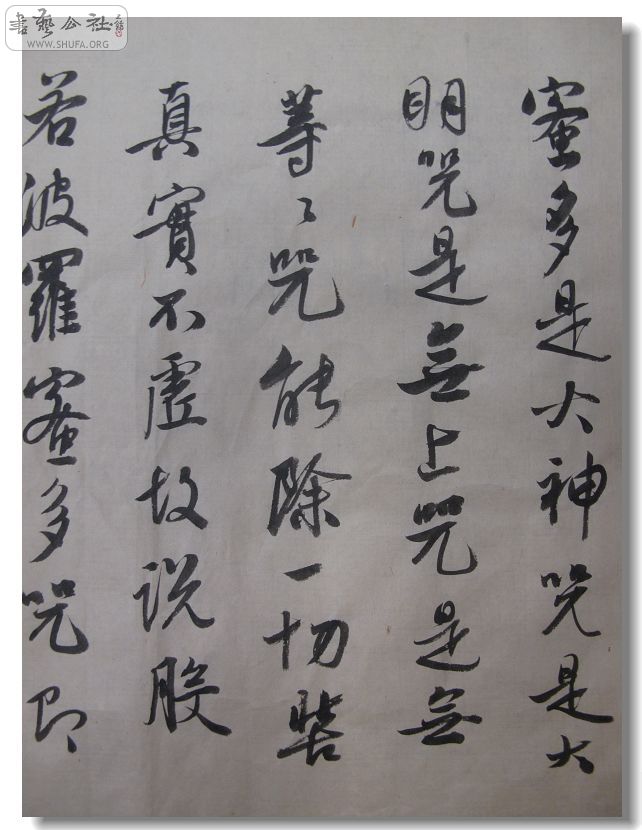 書藝公社
WWW.SHUFA.ORG
蜜多是大神咒是大
明咒是無上咒是無
等〻咒能除一切苦
真實不虛故説般
若波羅蜜多咒即